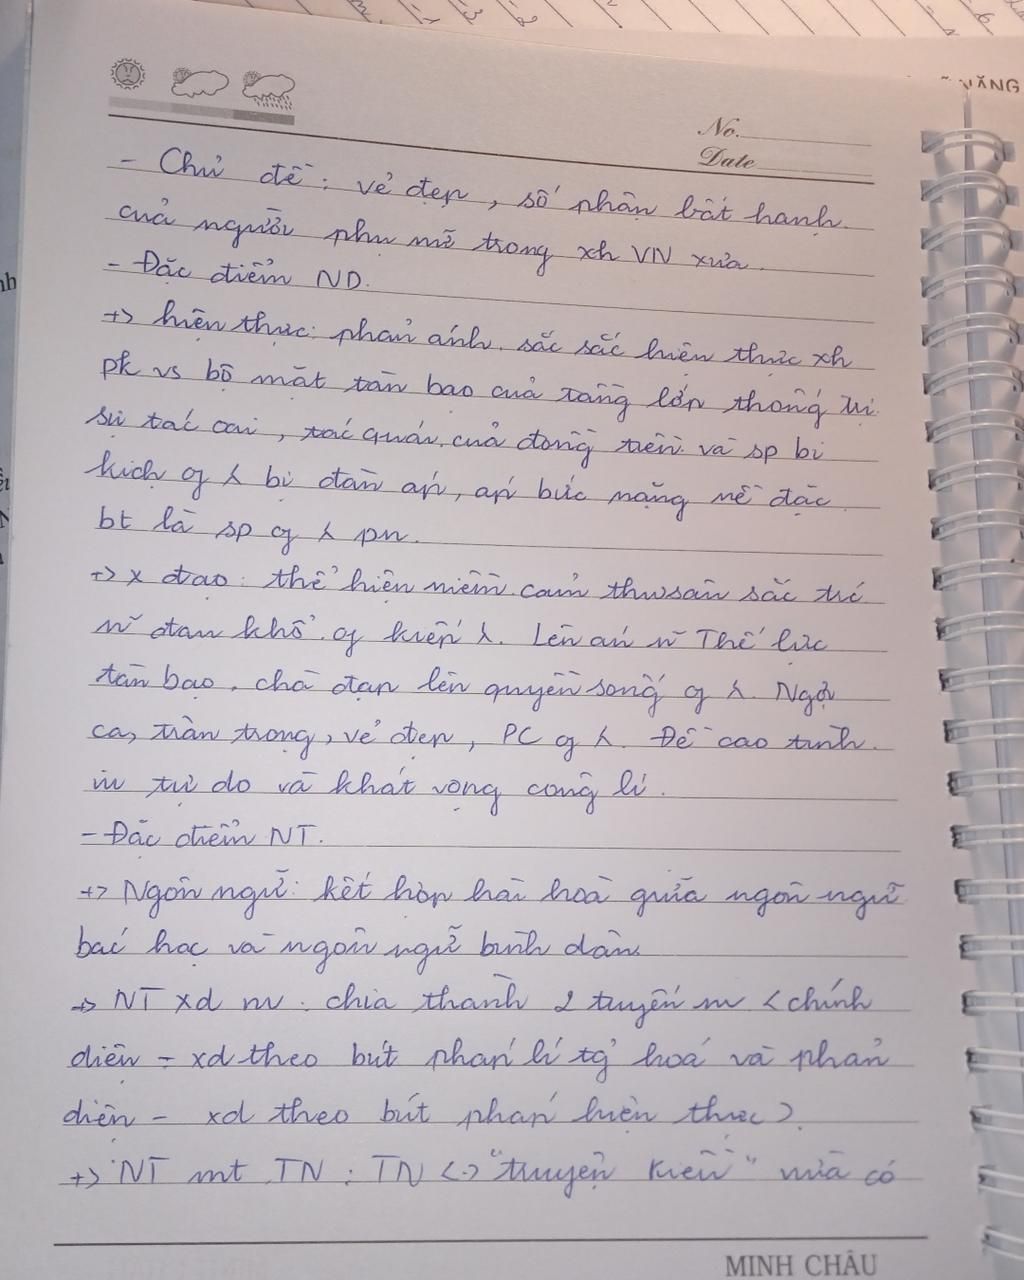 VĂNG
No.
Date
- Chủ đề : vẻ đẹp , số phận bất hạnh
của người phụ nữ trong xh VN xưa.
- Đặc điểm ND.
+> hiện thực: phản ánh sắc sắc hiện thực xh
pk vs bộ mặt tàn bạo của tầng lớp thống trị
sự tác oai , tác quái của đồng tiền và sp bi
kịch of λ bị đàn áp, áp bức nặng nề đặc
bt là sp of λ pn.
+> x đạo : thể hiện niềm cảm thư sâu sắc trc
n~ đau khổ of kiếp λ. Lên án n~ Thế lực
tàn bạo , chà đạp lên quyền sống of λ. Ngợi
ca, trân trọng, vẻ đẹp , PC of λ. Đề cao tình
iu tự do và khát vọng công lí .
- Đặc điểm NT.
+> Ngôn ngữ : kết hợp hài hoà giữa ngôn ngữ
bác học và ngôn ngữ bình dân.
=> NT xd nv : chia thành 2 tuyến nv < chính
diện - xd theo bút pháp lí tg' hoá và phản
diện - xd theo bút pháp hiện thực >
+> NT mt TN : TN <-> "truyện Kiều" vừa có
MINH CHÂU